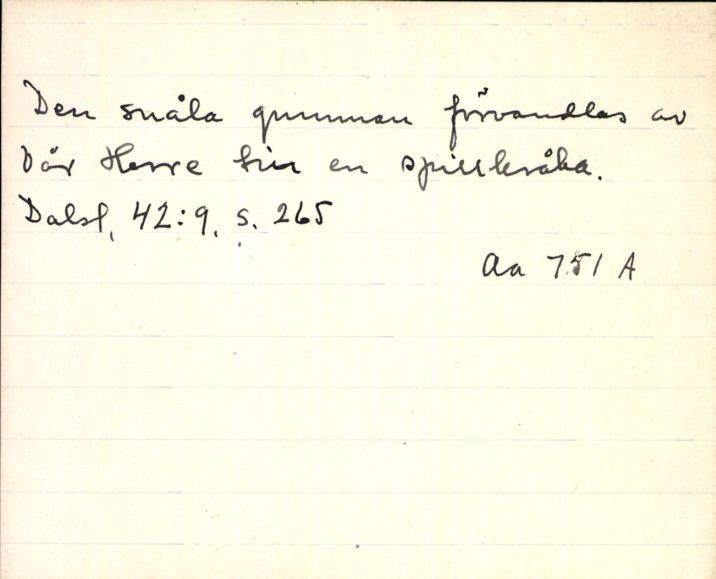 Den snåla gumman förvandlas av
Vår Herre till en spillkråka.
Dalsl, 42:9, s. 265
Aa 751 A